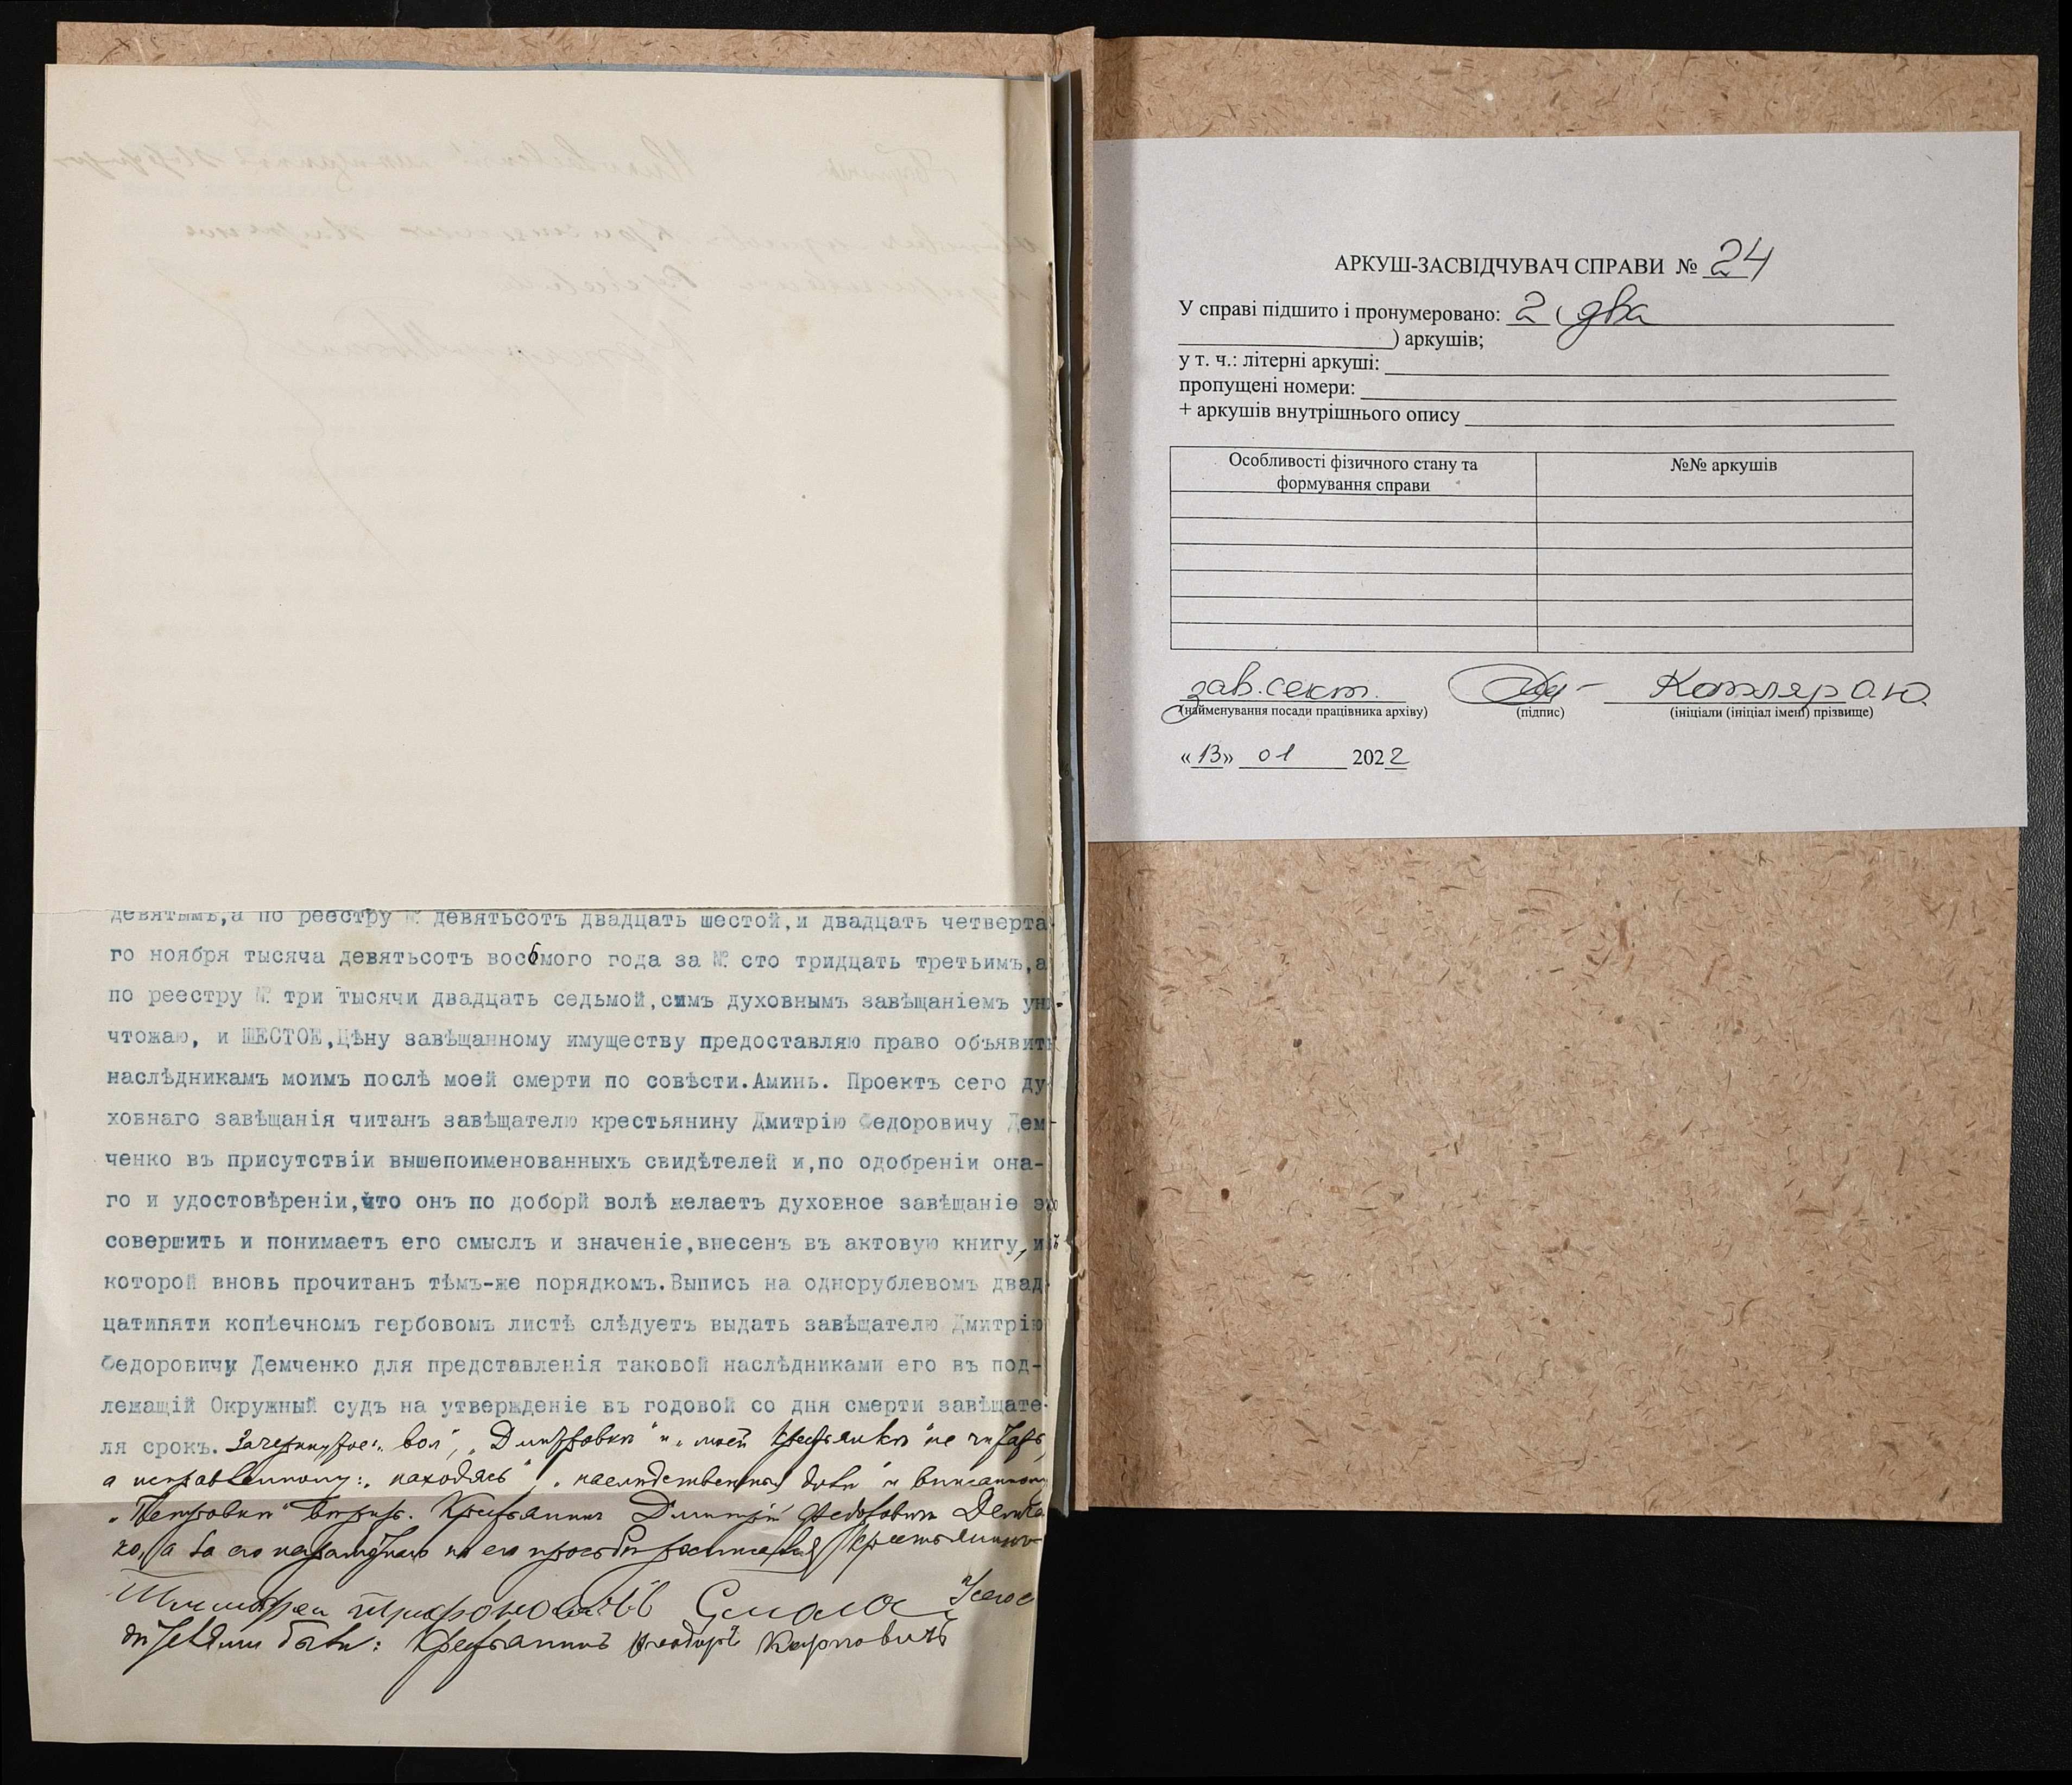 девятымъ,а по реестру № девятьсотъ двадцать шестой,и двадцать четверта
го ноября тысяча девятьсотъ восьмого года за № сто тридцать третьимъ,а
по реестру № три тысячи двадцать седьмой,симъ духовнымъ завѣщаніемъ уни-
чтожаю, и ШЕСТОЕ,Цѣну завѣщанному имуществу предоставляю право объявить
наслѣдникамъ моимъ послѣ моей смерти по совѣсти.Аминь. Проектъ сего ду
ховнаго завѣщанія читанъ завѣщателю крестьянину Дмитрію Федоровичу Дем-
ченко въ присутствіи вышепоименованныхъ свидѣтелей и,по одобреніи она-
го и удостовѣреніи,что онъ по доборй волѣ желаетъ духовное завѣщаніе это
совершить и понимаетъ его смыслъ и значеніе,внесенъ въ актовую книгу, изъ
которой вновь прочитанъ тѣмъ-же порядкомъ.Выпись на однорублевомъ двад-
цатипяти копѣечномъ гербовомъ листѣ слѣдуетъ выдать завѣщателю Дмитрію
Федоровичу Демченко для представленія таковой наслѣдниками его въ под-
лежащій Окружный судъ на утвержденіе въ годовой со дня смерти завѣщате-
ля срокъ. Зачеркнутое: „вол", „ " и „моей " не читать,
а исправленному: „находясь", „наслѣдственныя " и вписанному
„Петровки" вѣрить. Крестьянинъ Дмитрій Федоровичъ Демчен
ко, а за его неграмотнаго по его просьбѣ росписался крестьянинъ
Тимофей Трифоновичъ При сем сви
дѣтелями были: Крестьянинъ Федоръ Карповичъ
АРКУШ-ЗАСВІДЧУВАЧ СПРАВИ № 24
У справі підшито і пронумеровано: 2 ( два
) аркушів;
у т. ч.: літерні аркуші:
пропущені номери:
+ аркушів внутрішнього опису
Особливості фізичного стану та формування справи
№№ аркушів
зав. сект. Котляр О.Ю.
(найменування посади працівника архіву) (підпис) (ініціали (ініціал імені) прізвище)
«13» 01 2022